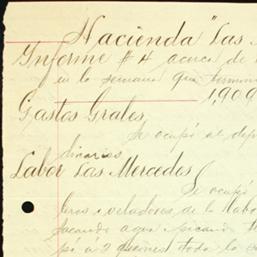 Hacienda "Las
Informe #4 acerca de
en la semana que termin
1,909
Gastos Grales,
Se ocupó al dep
dinarios
Labor Las Mercedes
Se ocupó
veladores de la labo
sacando agua, picando
pó a 2 quienes toda la